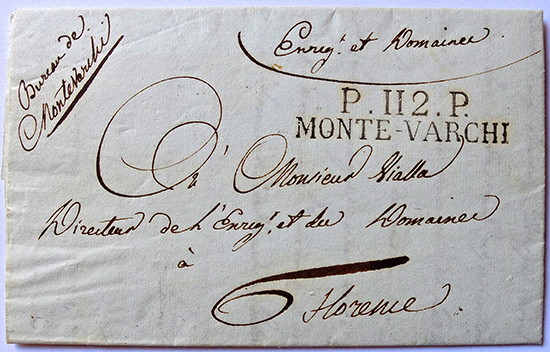 Bureau de
Montevarchi
Enrig.t et Domaines
P.112.P.
MONTE-VARCHI
à Monsieur Vialla
Directeur de l'Enrig.t et des Domaines
à
Florence